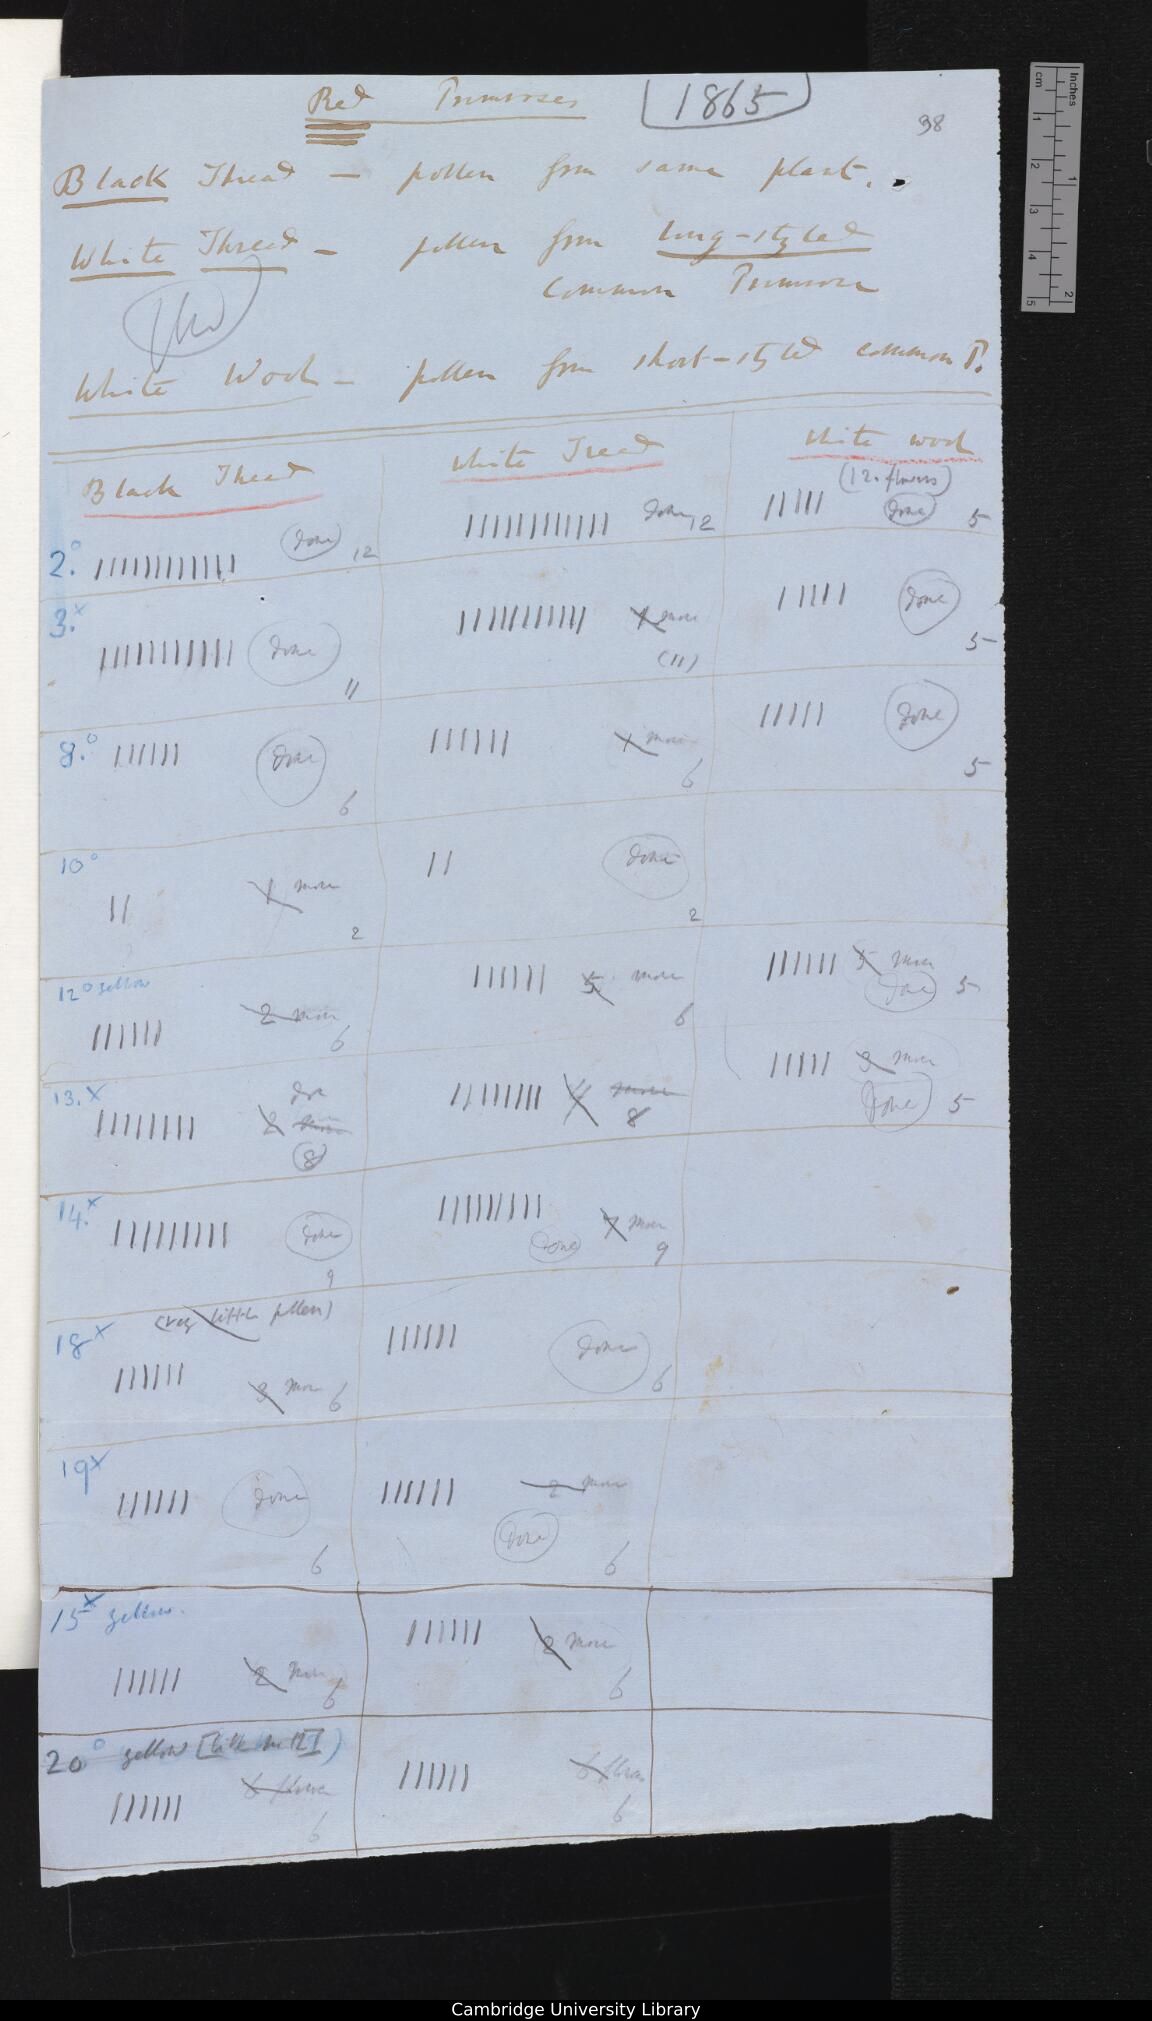 Red Primroses
1865
98
Black Thread — pollen from same plant.
White Thread — pollen from long-styled
common Primrose
White Wool — pollen from short-styled common P.
Black Thread
White Tread
White wool
(12. flowers)
2.° done 12
done 12
done 5
3.x done 11
1 more
(11)
done 5
8.° done 6
1 more 6
done 5
10° 1 more 2
done 2
12° yellow 2 more 6
5 more 6
5 more
done 5
13.x done
2 more
8
4 more
8
3 more
done 5
14.x done 9
7 more
done 9
18x (very little pollen)
3 more 6
done 6
19x done 6
2 more
done 6
15x yellow.
2 more 6
2 more 6
20° yellow [like no 12]
6 flowers
6
6 flowers
6
Inches
cm
1
2
3
4
5
1
2
Cambridge University Library